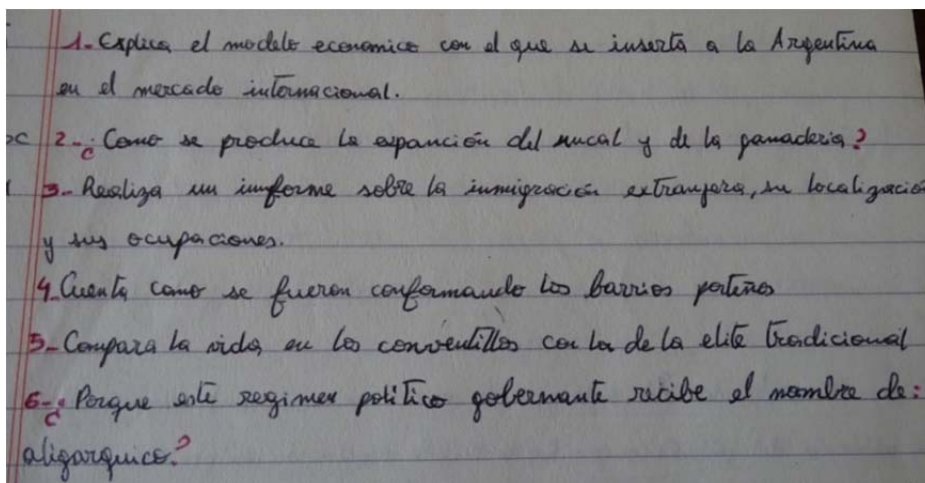 1- Explica el modelo economico con el que se inserta a la Argentina
en el mercado internacional.
2-¿Como se produce la expanción del rucal y de la ganaderia?
3- Realiza un imforme sobre la inmigración extranjera, su localización
y sus ocupaciones.
4-Cuenta como se fueron conformando los barrios porteños
5-Compara la vida en los conventillos con la de la elite tradicional
6-¿Porque este regimen politico gobernante recibe el nombre de:
oligarquico?